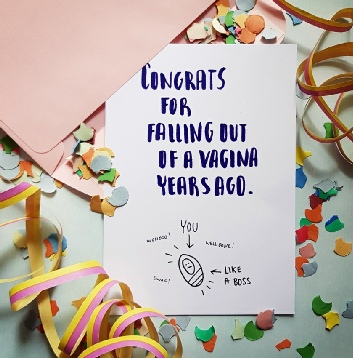 CONGRATS
FOR
FALLING OUT
OF A VAGINA
YEARS AGO.
YOU
WELL DONE!
LIKE
A BOSS